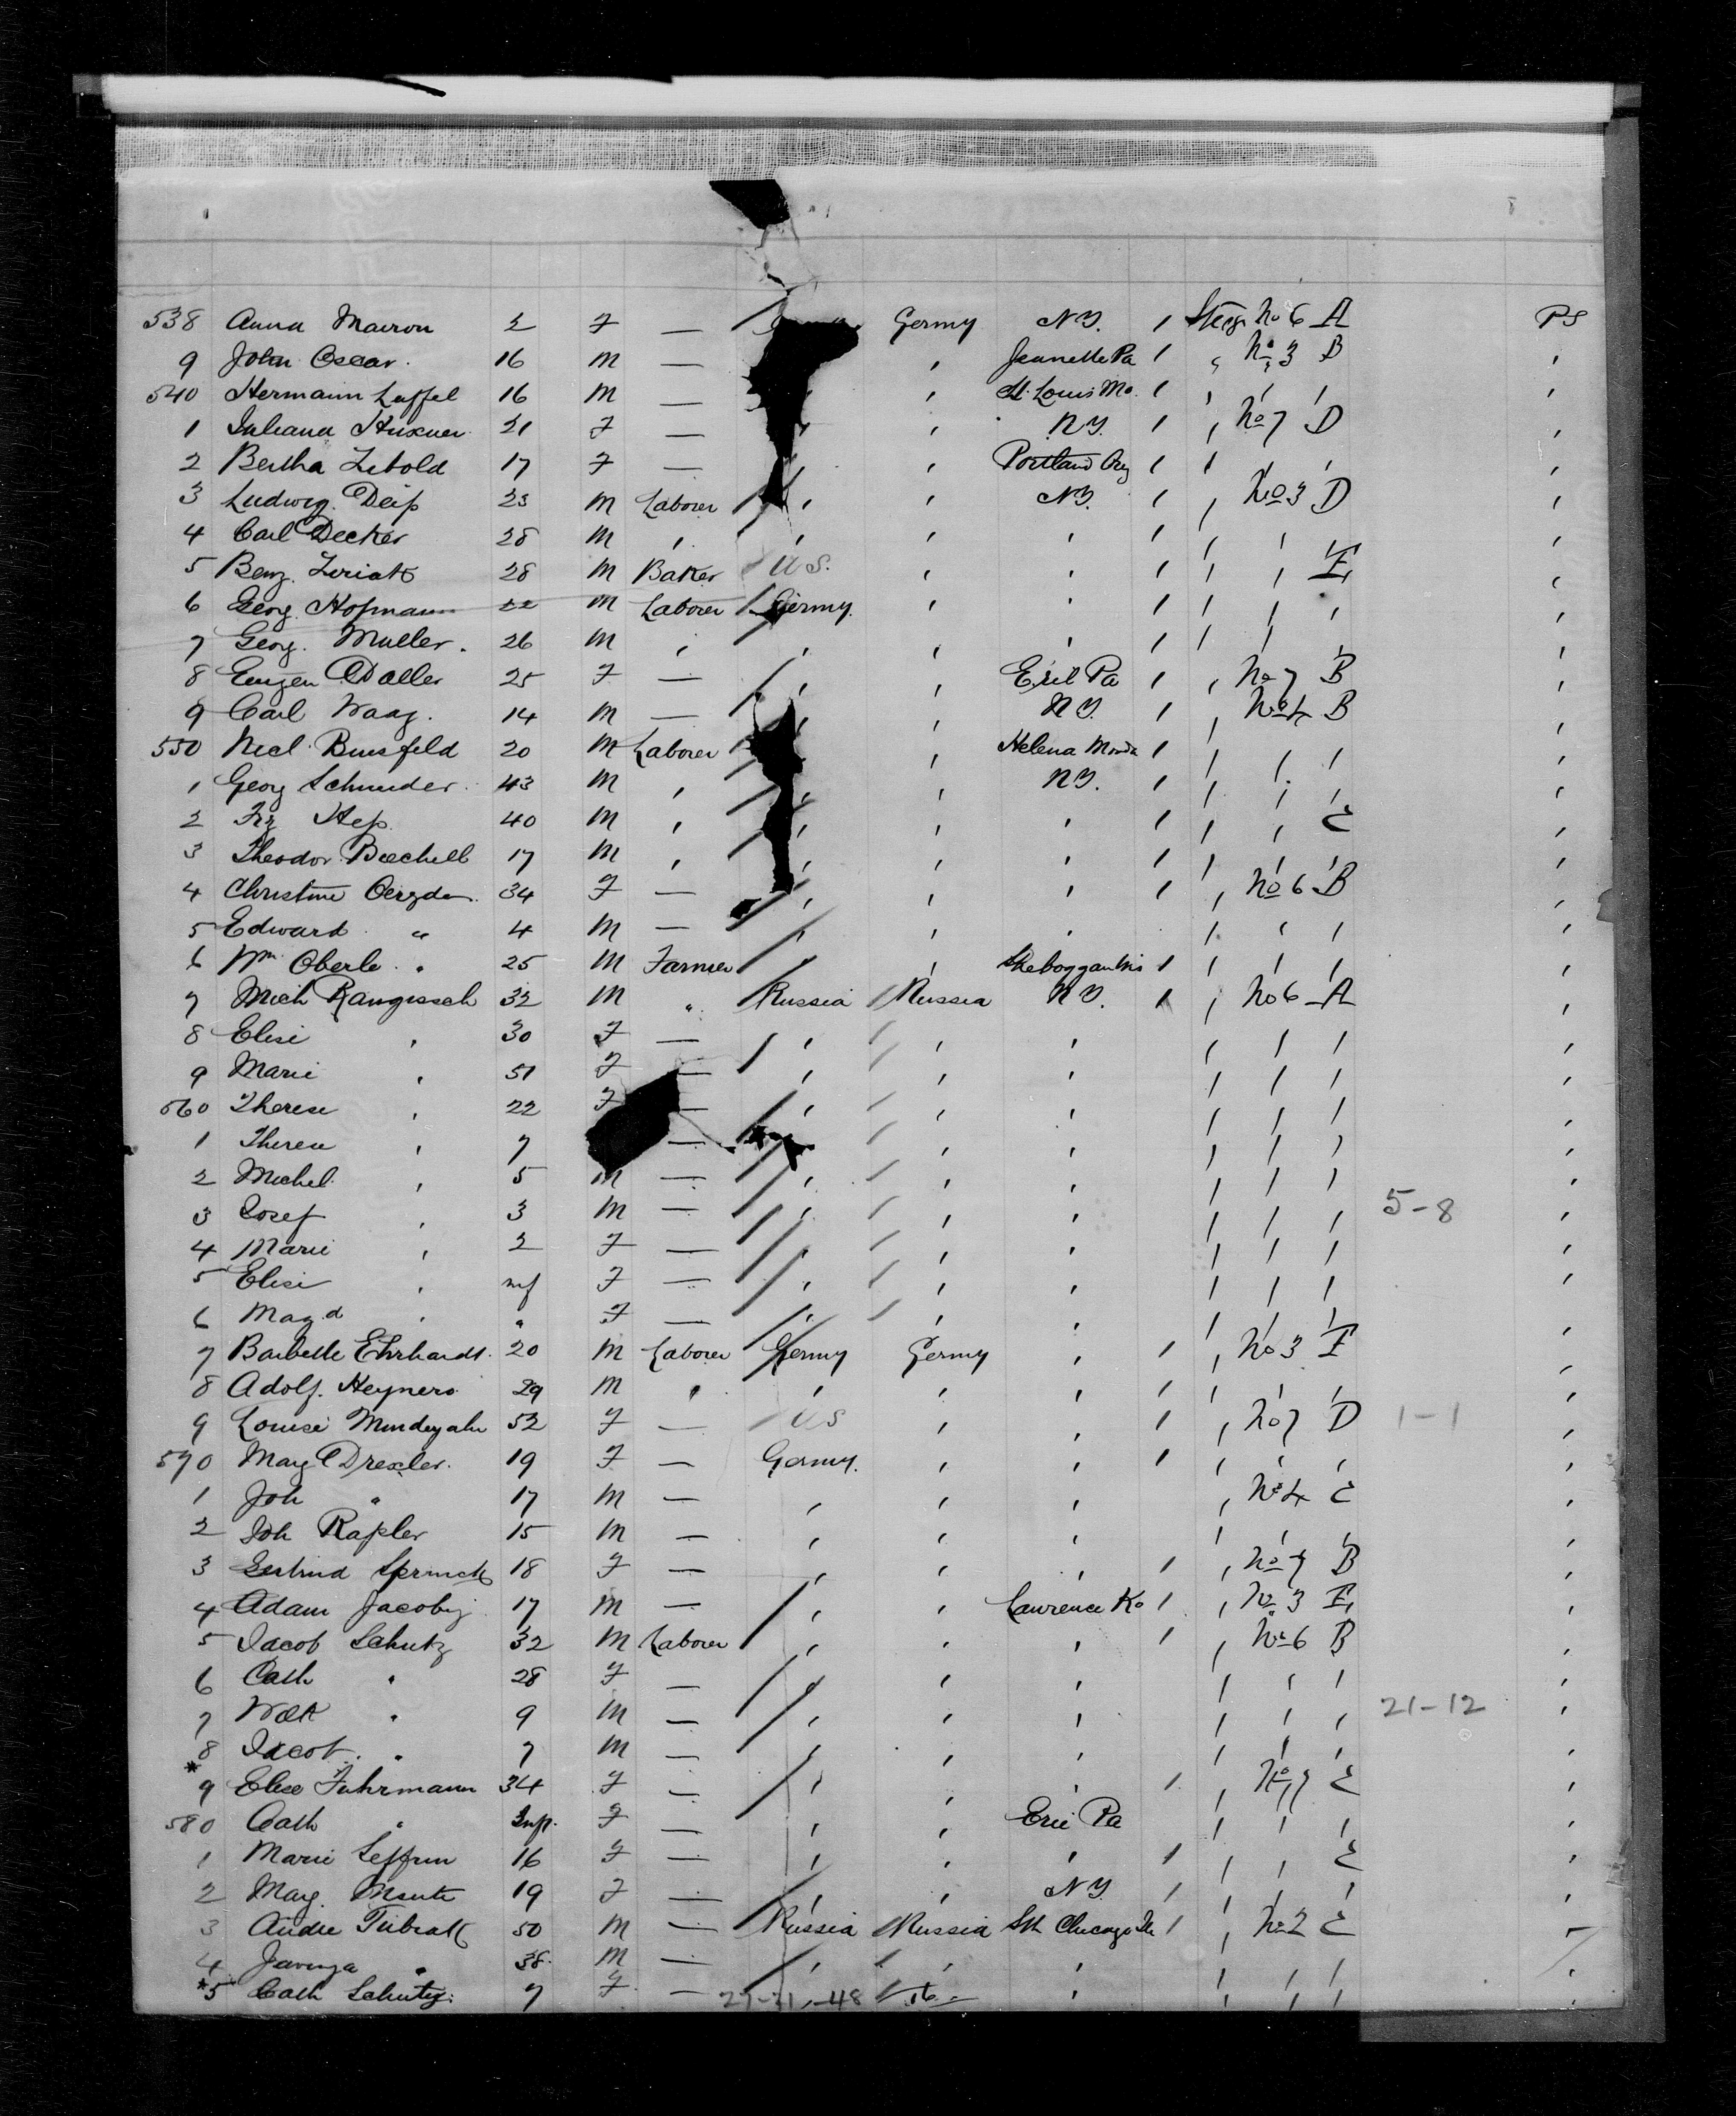 538 Anna Mairon 2 F — Germy N.Y. 1 Steeg No 6 A PS
9 John Oscar. 16 M — " Jeanette Pa 1 " No 3 B "
540 Hermann Luffel 16 M — " St. Louis Mo. 1 " " " "
1 Juliana Huxner 21 F — " " N.Y. 1 " No 7 D "
2 Bertha Zebold 17 F — " " Portland Org 1 " " " "
3 Ludwig Deiss 23 M Laborer " " N.Y. 1 " No 3 D "
4 Carl Decker 28 M " " " " 1 " " " "
5 Benz. 28 M Baker U S. " " 1 " " E "
6 Georg. Hofmann 22 M Laborer Germy. " " 1 " " " "
7 Georg. Muller. 26 M " " " " 1 " " " "
8 Eugen Daller 25 F — " " Erie Pa 1 " No 7 B "
9 Carl Waag. 14 M — " N.Y. 1 " No 4 B "
550 Nicl. 20 M Laborer " Helena 1 " " " "
1 Georg Schneider. 43 M " " " N.Y. 1 " " " "
2 Frz Hess 40 M " " " " 1 " " E "
3 Theodor 17 M " " " " 1 " " " "
4 Christine 34 F — " " " 1 " No 6 B "
5 Edward " 4 M — " " " " " " "
6 Wm Oberle. 25 M Farmer " " 1 " " " "
7 Mich 32 M " Russia Russia N.Y. 1 " No 6 A "
8 Elisi " 30 F — " " " " " " "
9 Marie " 51 F — " " " " " " "
560 Therese " 22 F — " " " " " " "
1 Therese " 7 — " " " " " "
2 Michel " 5 M — " " " " " " "
3 Josef " 3 M — " " " " " " 5-8 "
4 Marie " 2 F — " " " " " " "
5 Elisi " inf F — " " " " " " "
6 Magd " " F — " " " " " "
7 Barbette Ehrhardt. 20 M Laborer Germy Germy " 1 " No 3 E "
8 Adolf. Heyners 29 M " " " " 1 " " " "
9 Louise 52 F — U S " " 1 " No 7 D 1-1 "
570 Marg Drexler. 19 F — Germy. " " 1 " " " "
1 Joh " 17 M — " " " " No 4 E "
2 Joh Rassler 15 M — " " " " " " "
3 18 F — " " " 1 " No 7 B "
4 Adam Jacoby 17 M — " " Lawrence Ka 1 " No 3 E "
5 Jacob Schutz 32 M Laborer " " " 1 " No 6 B "
6 Cath " 28 F — " " " " " " "
7 " 9 M — " " " " " " 21-12 "
8 Jacob. " 7 M — " " " " " " "
* 9 Elise Fuhrmann 34 F — " " " 1 " No 7 E "
580 Cath " Inf. F — " " Erie Pa " " " "
1 Marie 16 F — " " " 1 " " E "
2 Marg. 19 F — " " N.Y. 1 " " " "
3 Andre 50 M — Russia Russia Sth Chicago Ill 1 " No 2 E
4 " 38. M — " " " " " " "
*5 Cath Schutz. 7 F — " " " " " "